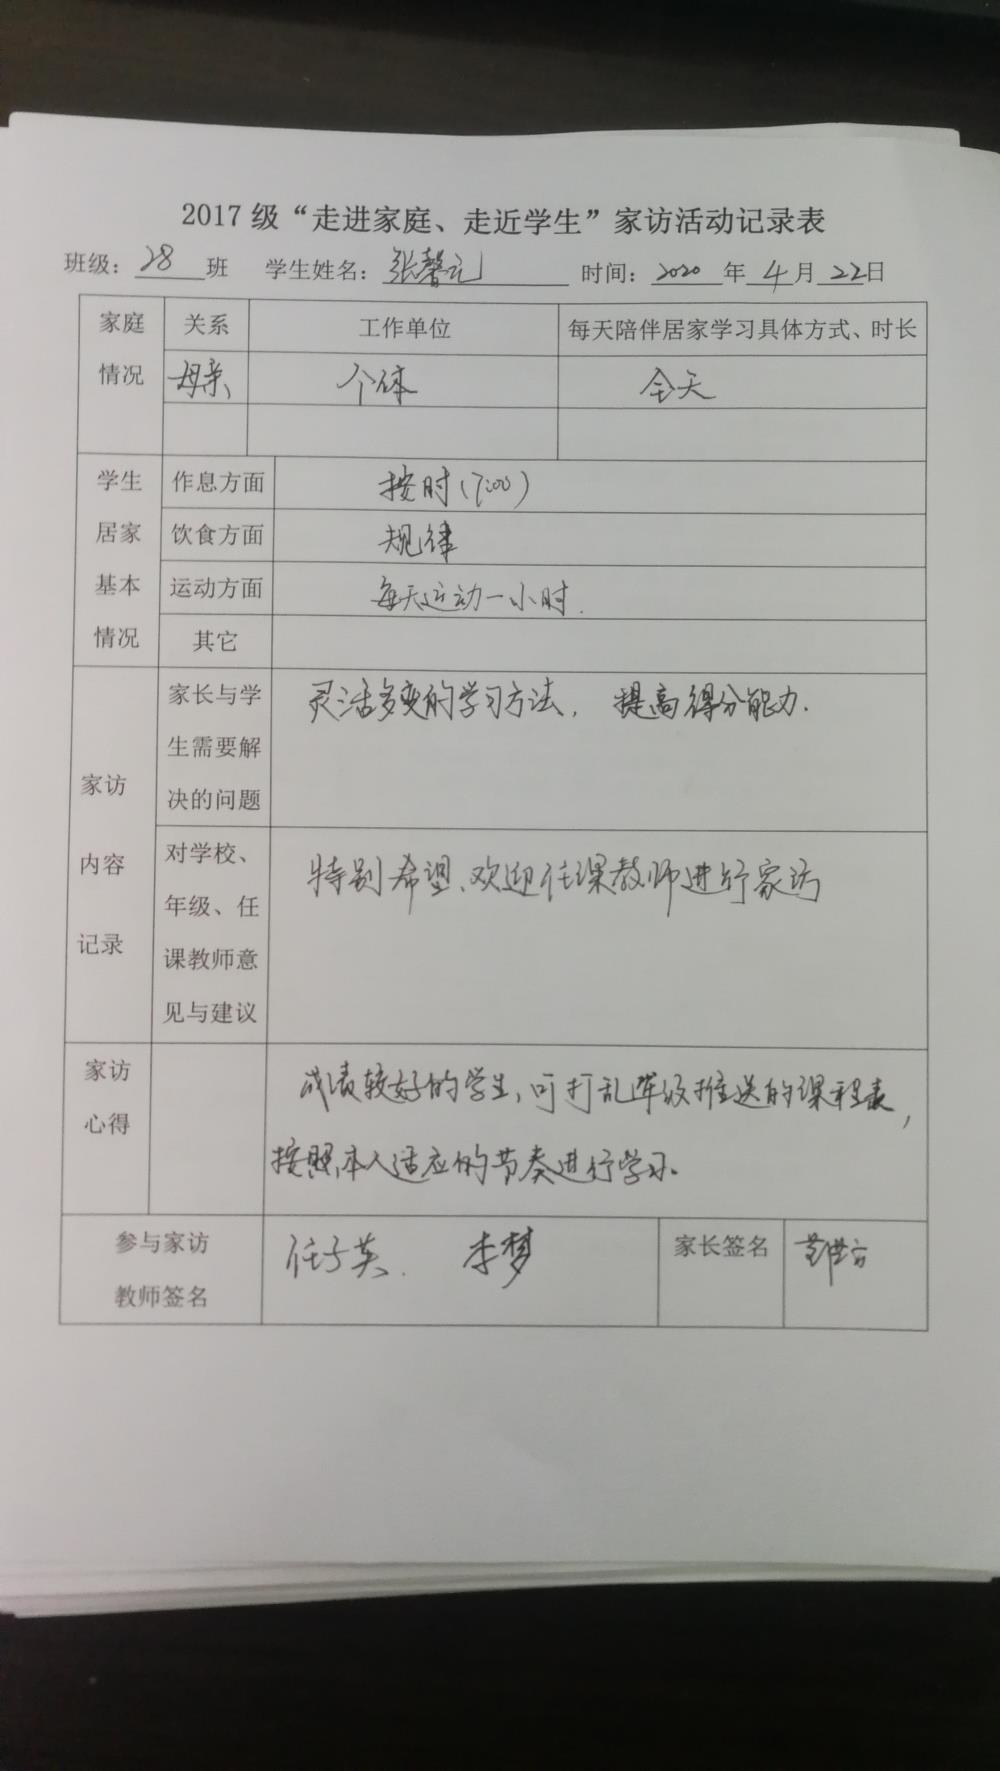 2017 级“走进家庭、走近学生”家访活动记录表
班级：28班 学生姓名：张馨元 时间：2020年4月22日
家庭情况 关系 工作单位 每天陪伴居家学习具体方式、时长
母亲 个体 全天
学生居家基本情况 作息方面 按时（7:00）
饮食方面 规律
运动方面 每天运动一小时.
其它
家访内容记录 家长与学生需要解决的问题 灵活多变的学习方法， 提高得分能力.
对学校、年级、任课教师意见与建议 特别希望、欢迎任课教师进行家访
家访心得 成绩较好的学生，可打乱年级推送的课程表，
按照本人适应的节奏进行学习。
参与家访教师签名 任子英. 李梦 家长签名